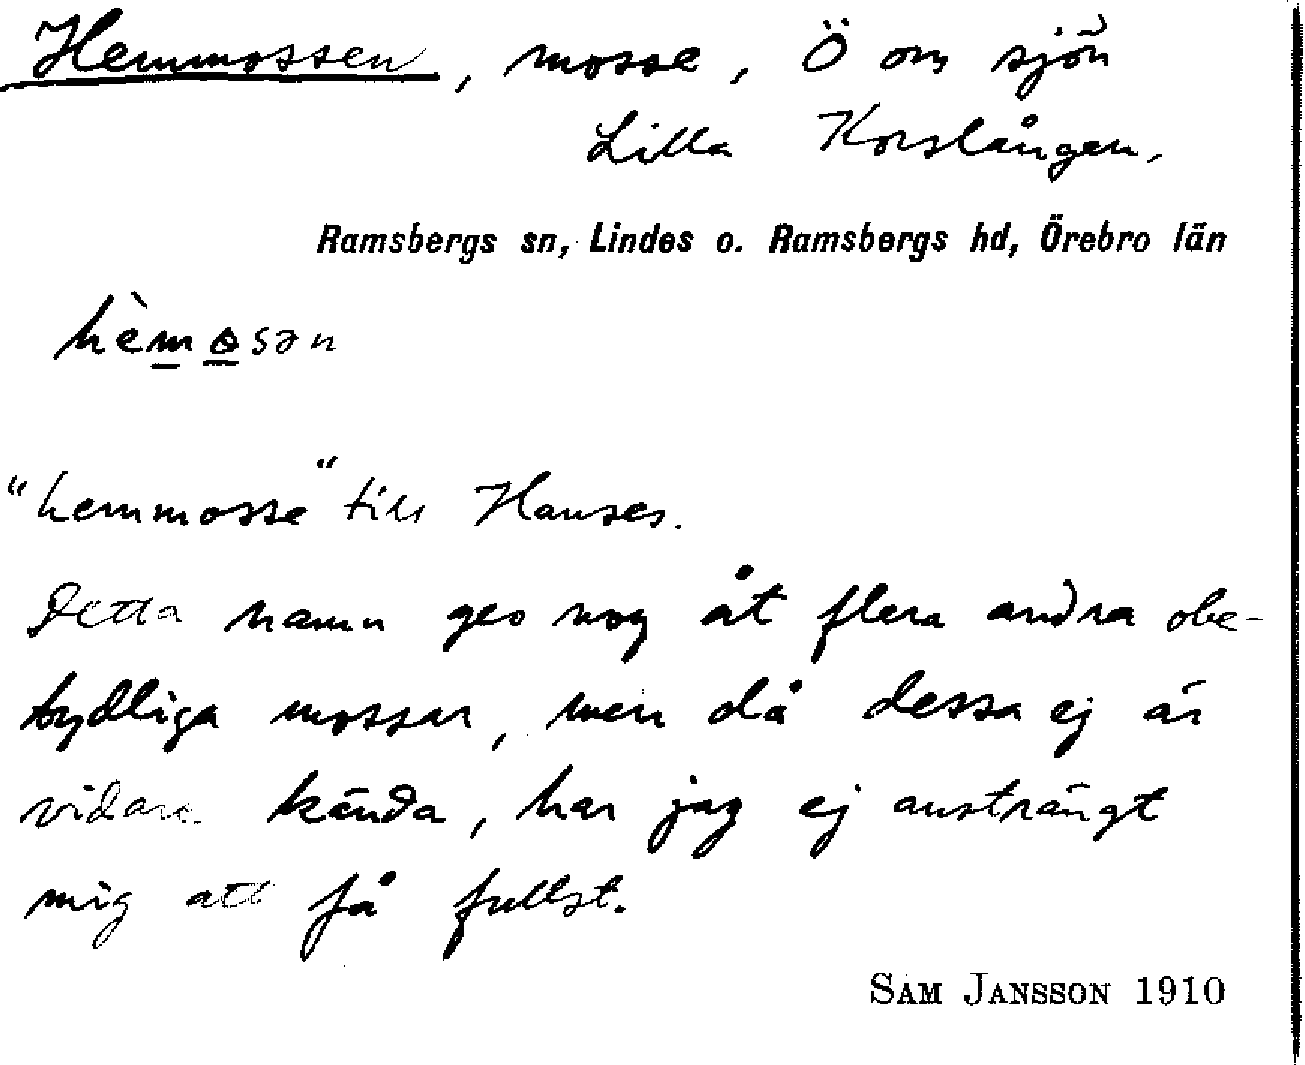 Hemmossen, mosse, Ö om sjön
Lilla Korslången,
Ramsbergs sn, Lindes o. Ramsbergs hd, Örebro län
hèmosən
"hemmosse" till Hanses.
Detta namn ges nog åt flera andra obe-
tydliga mossar, men då dessa ej är
vidare kända, har jag ej ansträngt
mig att få fullst.
SAM JANSSON 1910